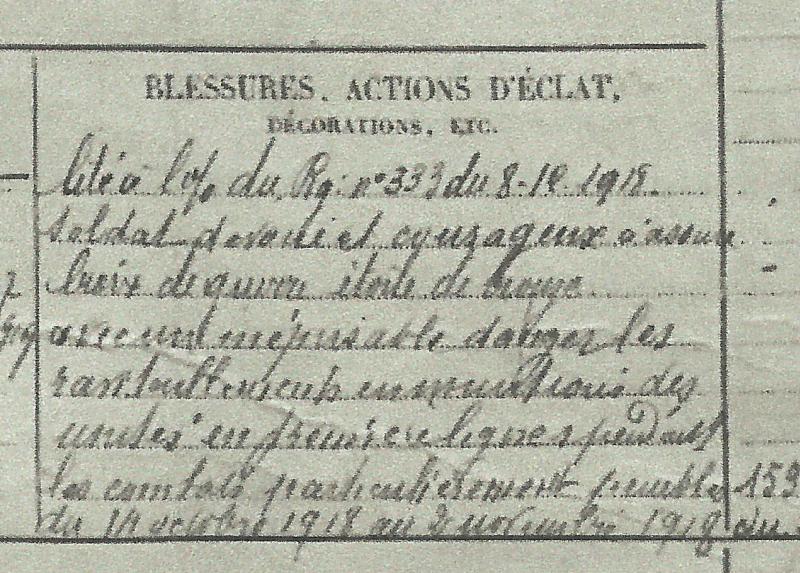 BLESSURES, ACTIONS D'ÉCLAT,
DÉCORATIONS, ETC.
Cité à l'o/o du Rg: n° 333 du 8-1 1918.
Soldat dévoué et courageux a assuré
Croix de guerre étoile de bronze
avec un mépris du danger les
ravitaillements en munitions des
unités en première lignes pendant
les combats particulièrement penible 153
du 14 octobre 1918 au 2 novembre 1918 du